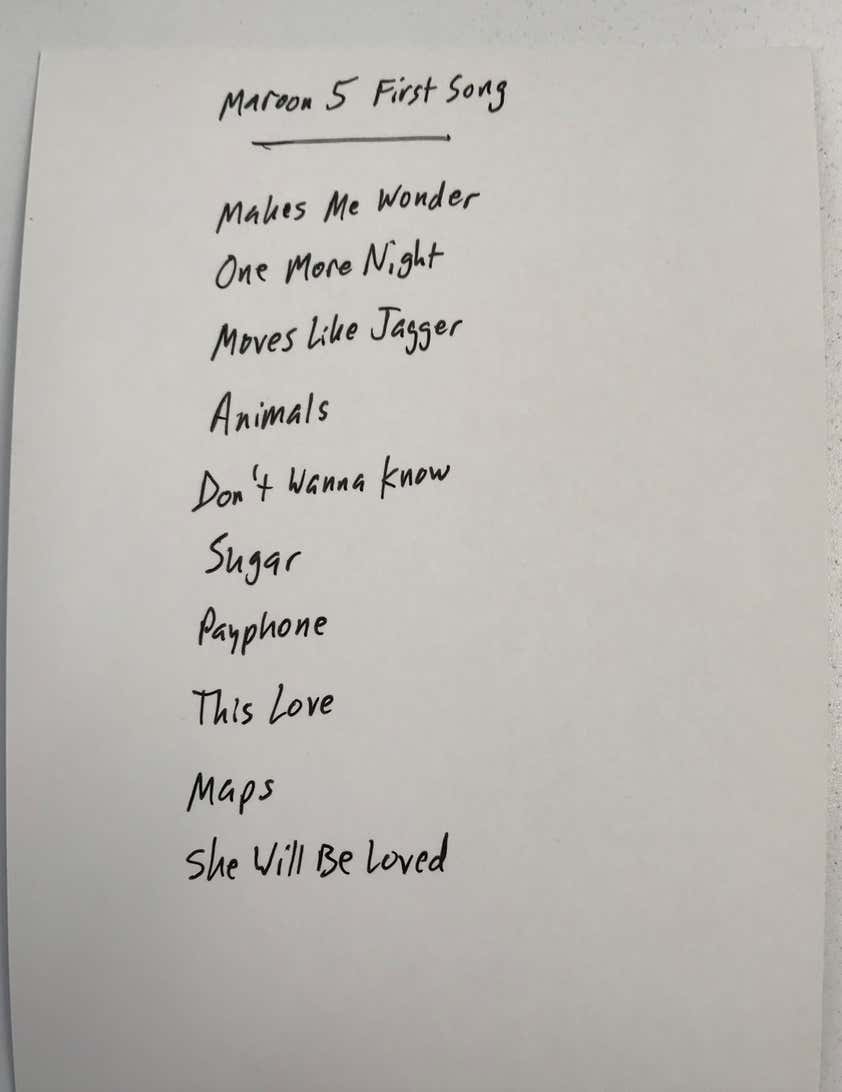 Maroon 5 First Song
Makes Me Wonder
One More Night
Moves Like Jagger
Animals
Don't Wanna Know
Sugar
Payphone
This Love
Maps
She Will Be Loved